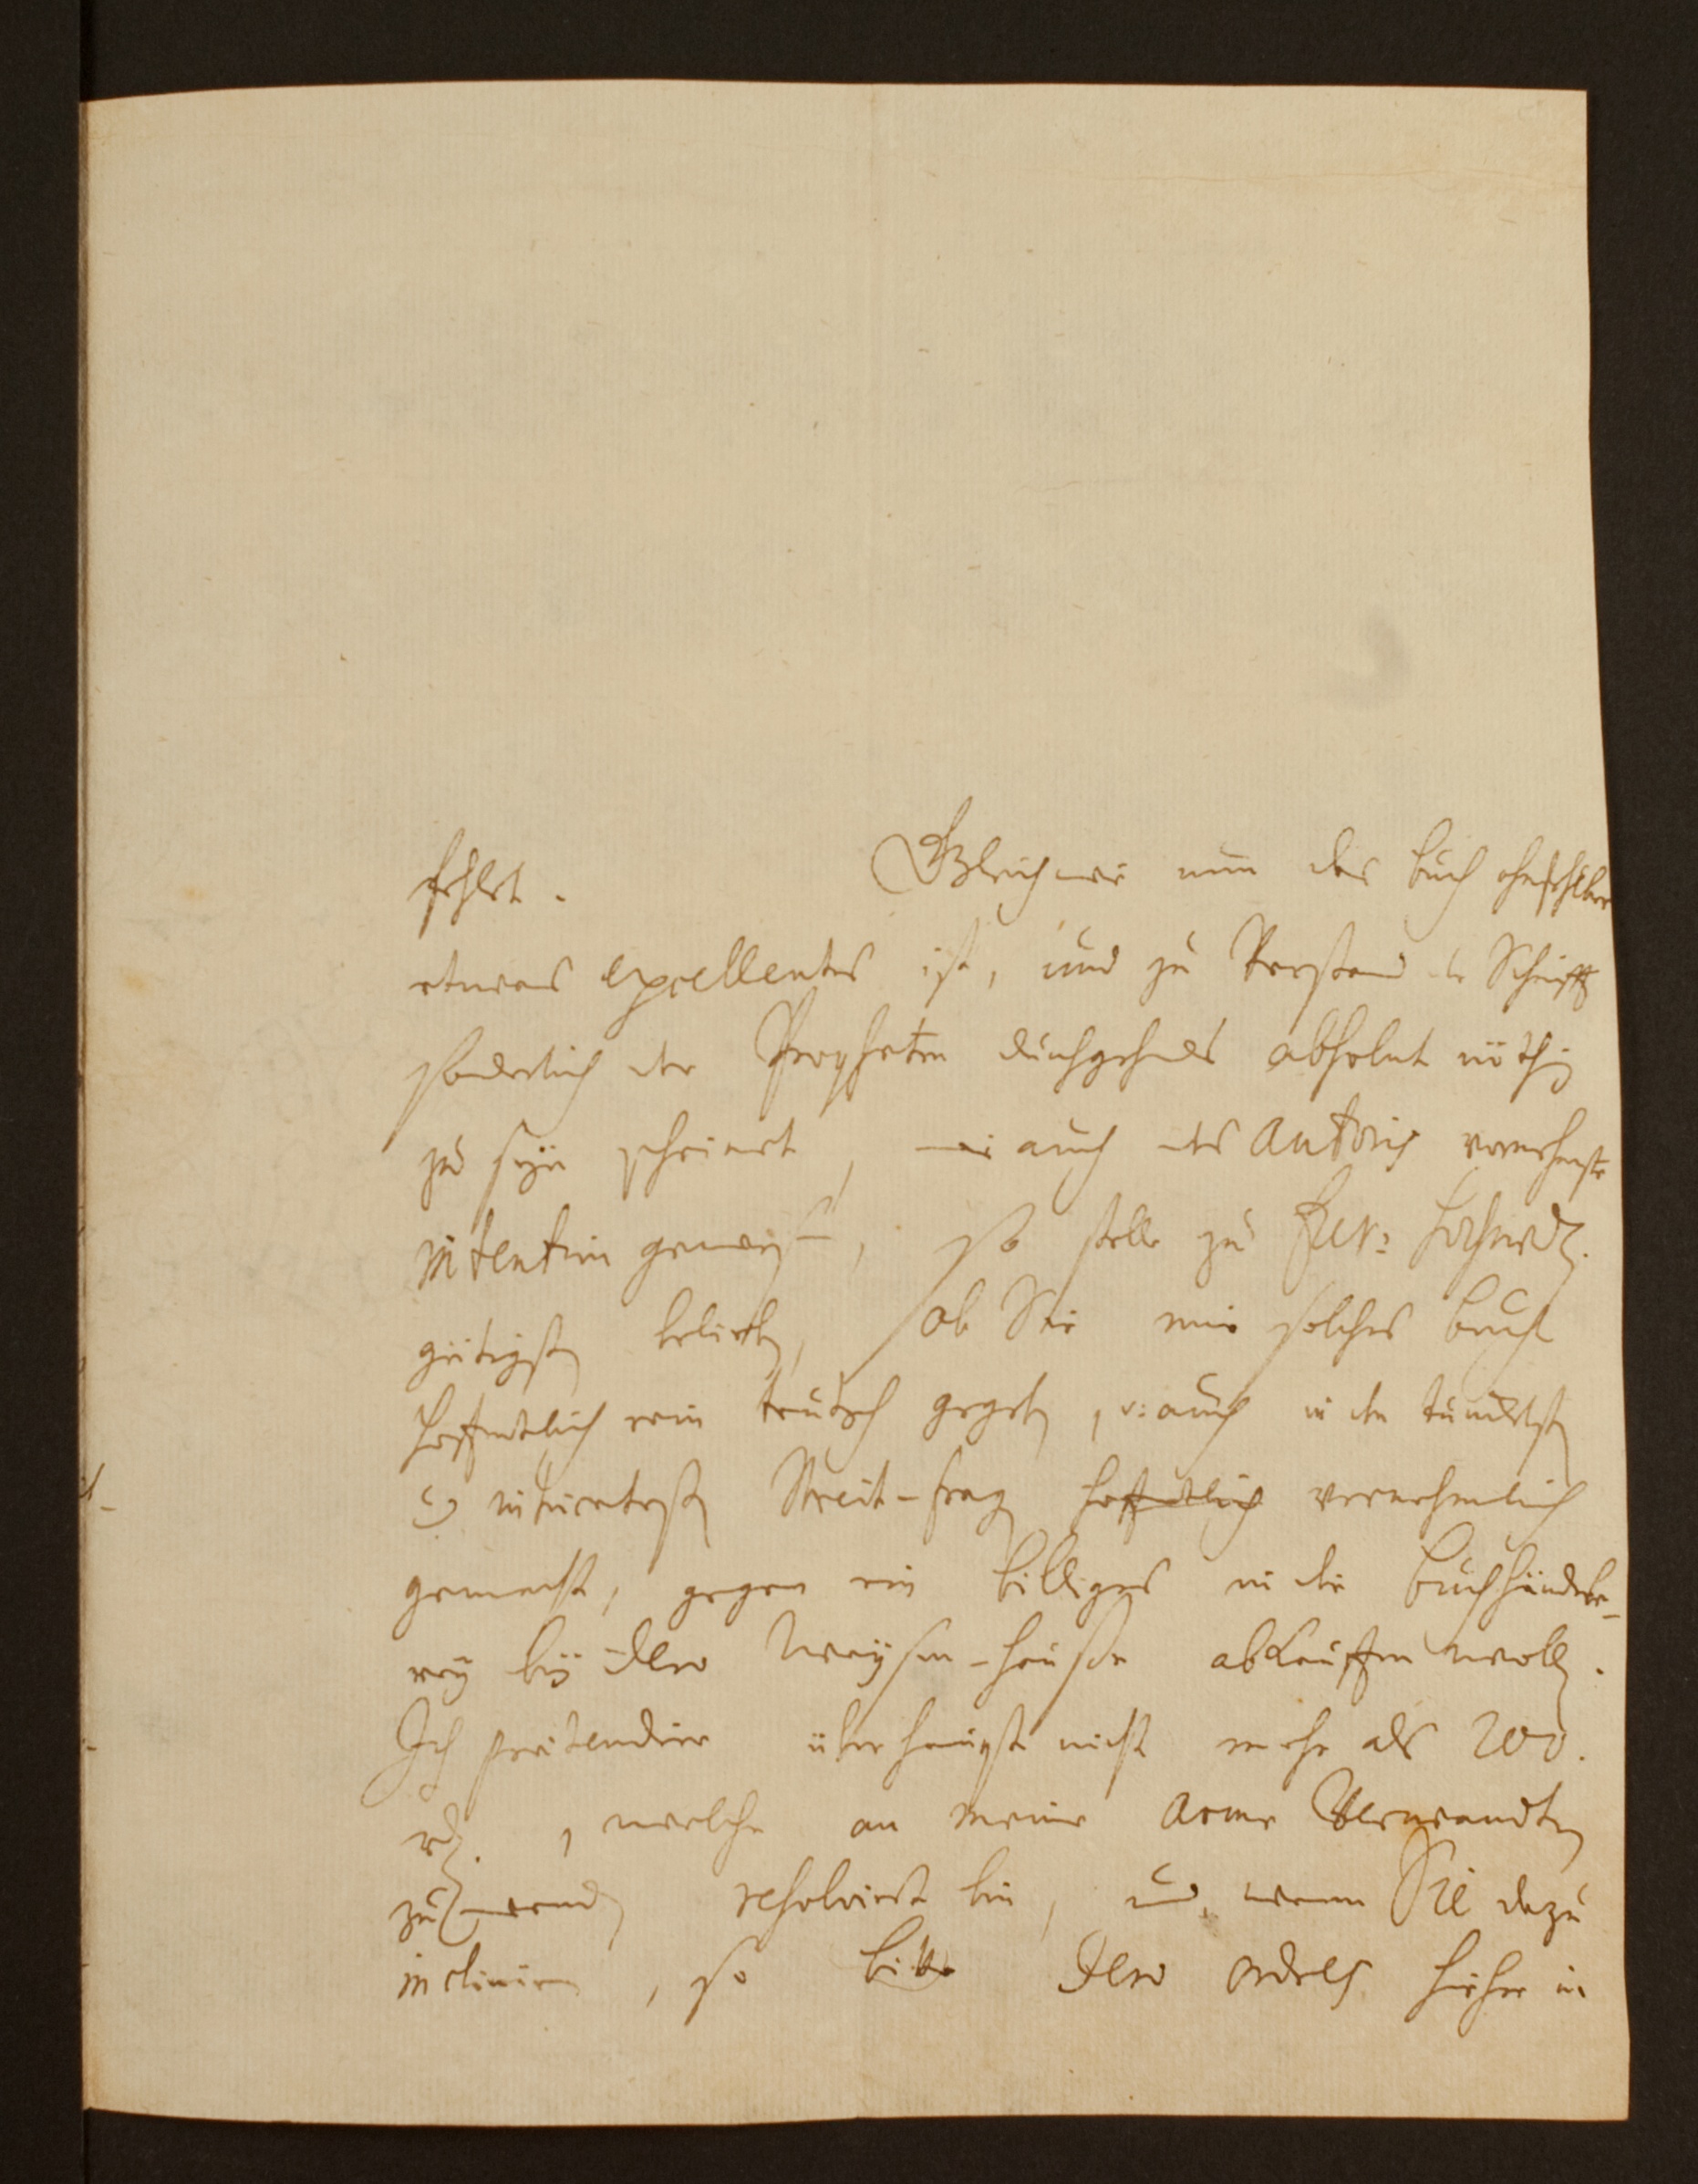 fehlet. Gleich wie nun das buch ohnfehlbar
etwas excellentes ist, und zu Verstand der Schrifft
sonderlich der Propheten durchgehends absolut nöthig
zu seyn scheinet, wie auch des Autoris vornehmste
intention gewesen, so stelle zu Euer: Hochwürd.
gütigsten belieben, ob Sie mir solches buch
hoffentlich rein teutsch gegeben, v: auch in den dunckelsten
v intricatesten Streit-fragen hoffentlich vernehmlich
gemacht, gegen ein billiges in die buchhändele-
rey bey dero Waysen-hause abkauffen wollen.
Ich prätendire überhaupt nicht mehr als 200.
rth., welche an meine arme Verwandten
zu wenden resolvirt bin, und, wenn Sie dazu
incliniren, so bitte dero ordres hieher in